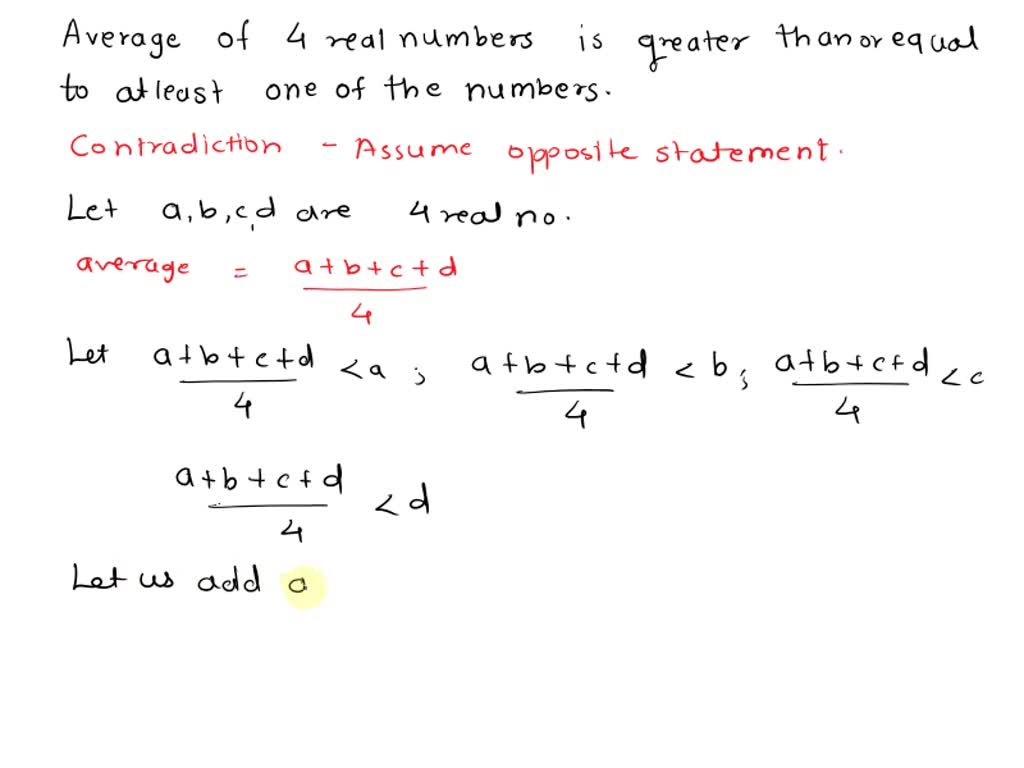 Average of 4 real numbers is greater than or equal
to atleast one of the numbers.
Contradiction - Assume opposite statement.
Let a, b, c, d are 4 real no.
average = a+b+c+d
4
Let a+b+c+d < a ; a+b+c+d < b ; a+b+c+d < c
4 4 4
a+b+c+d < d
4
Let us add a